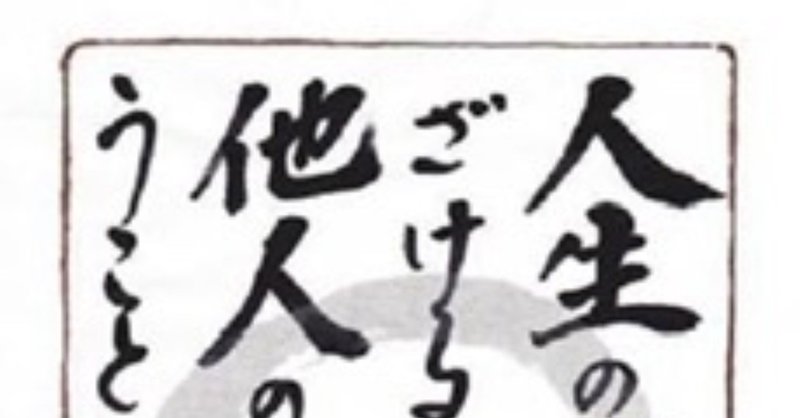 人生の
ざける
他人の
うこと